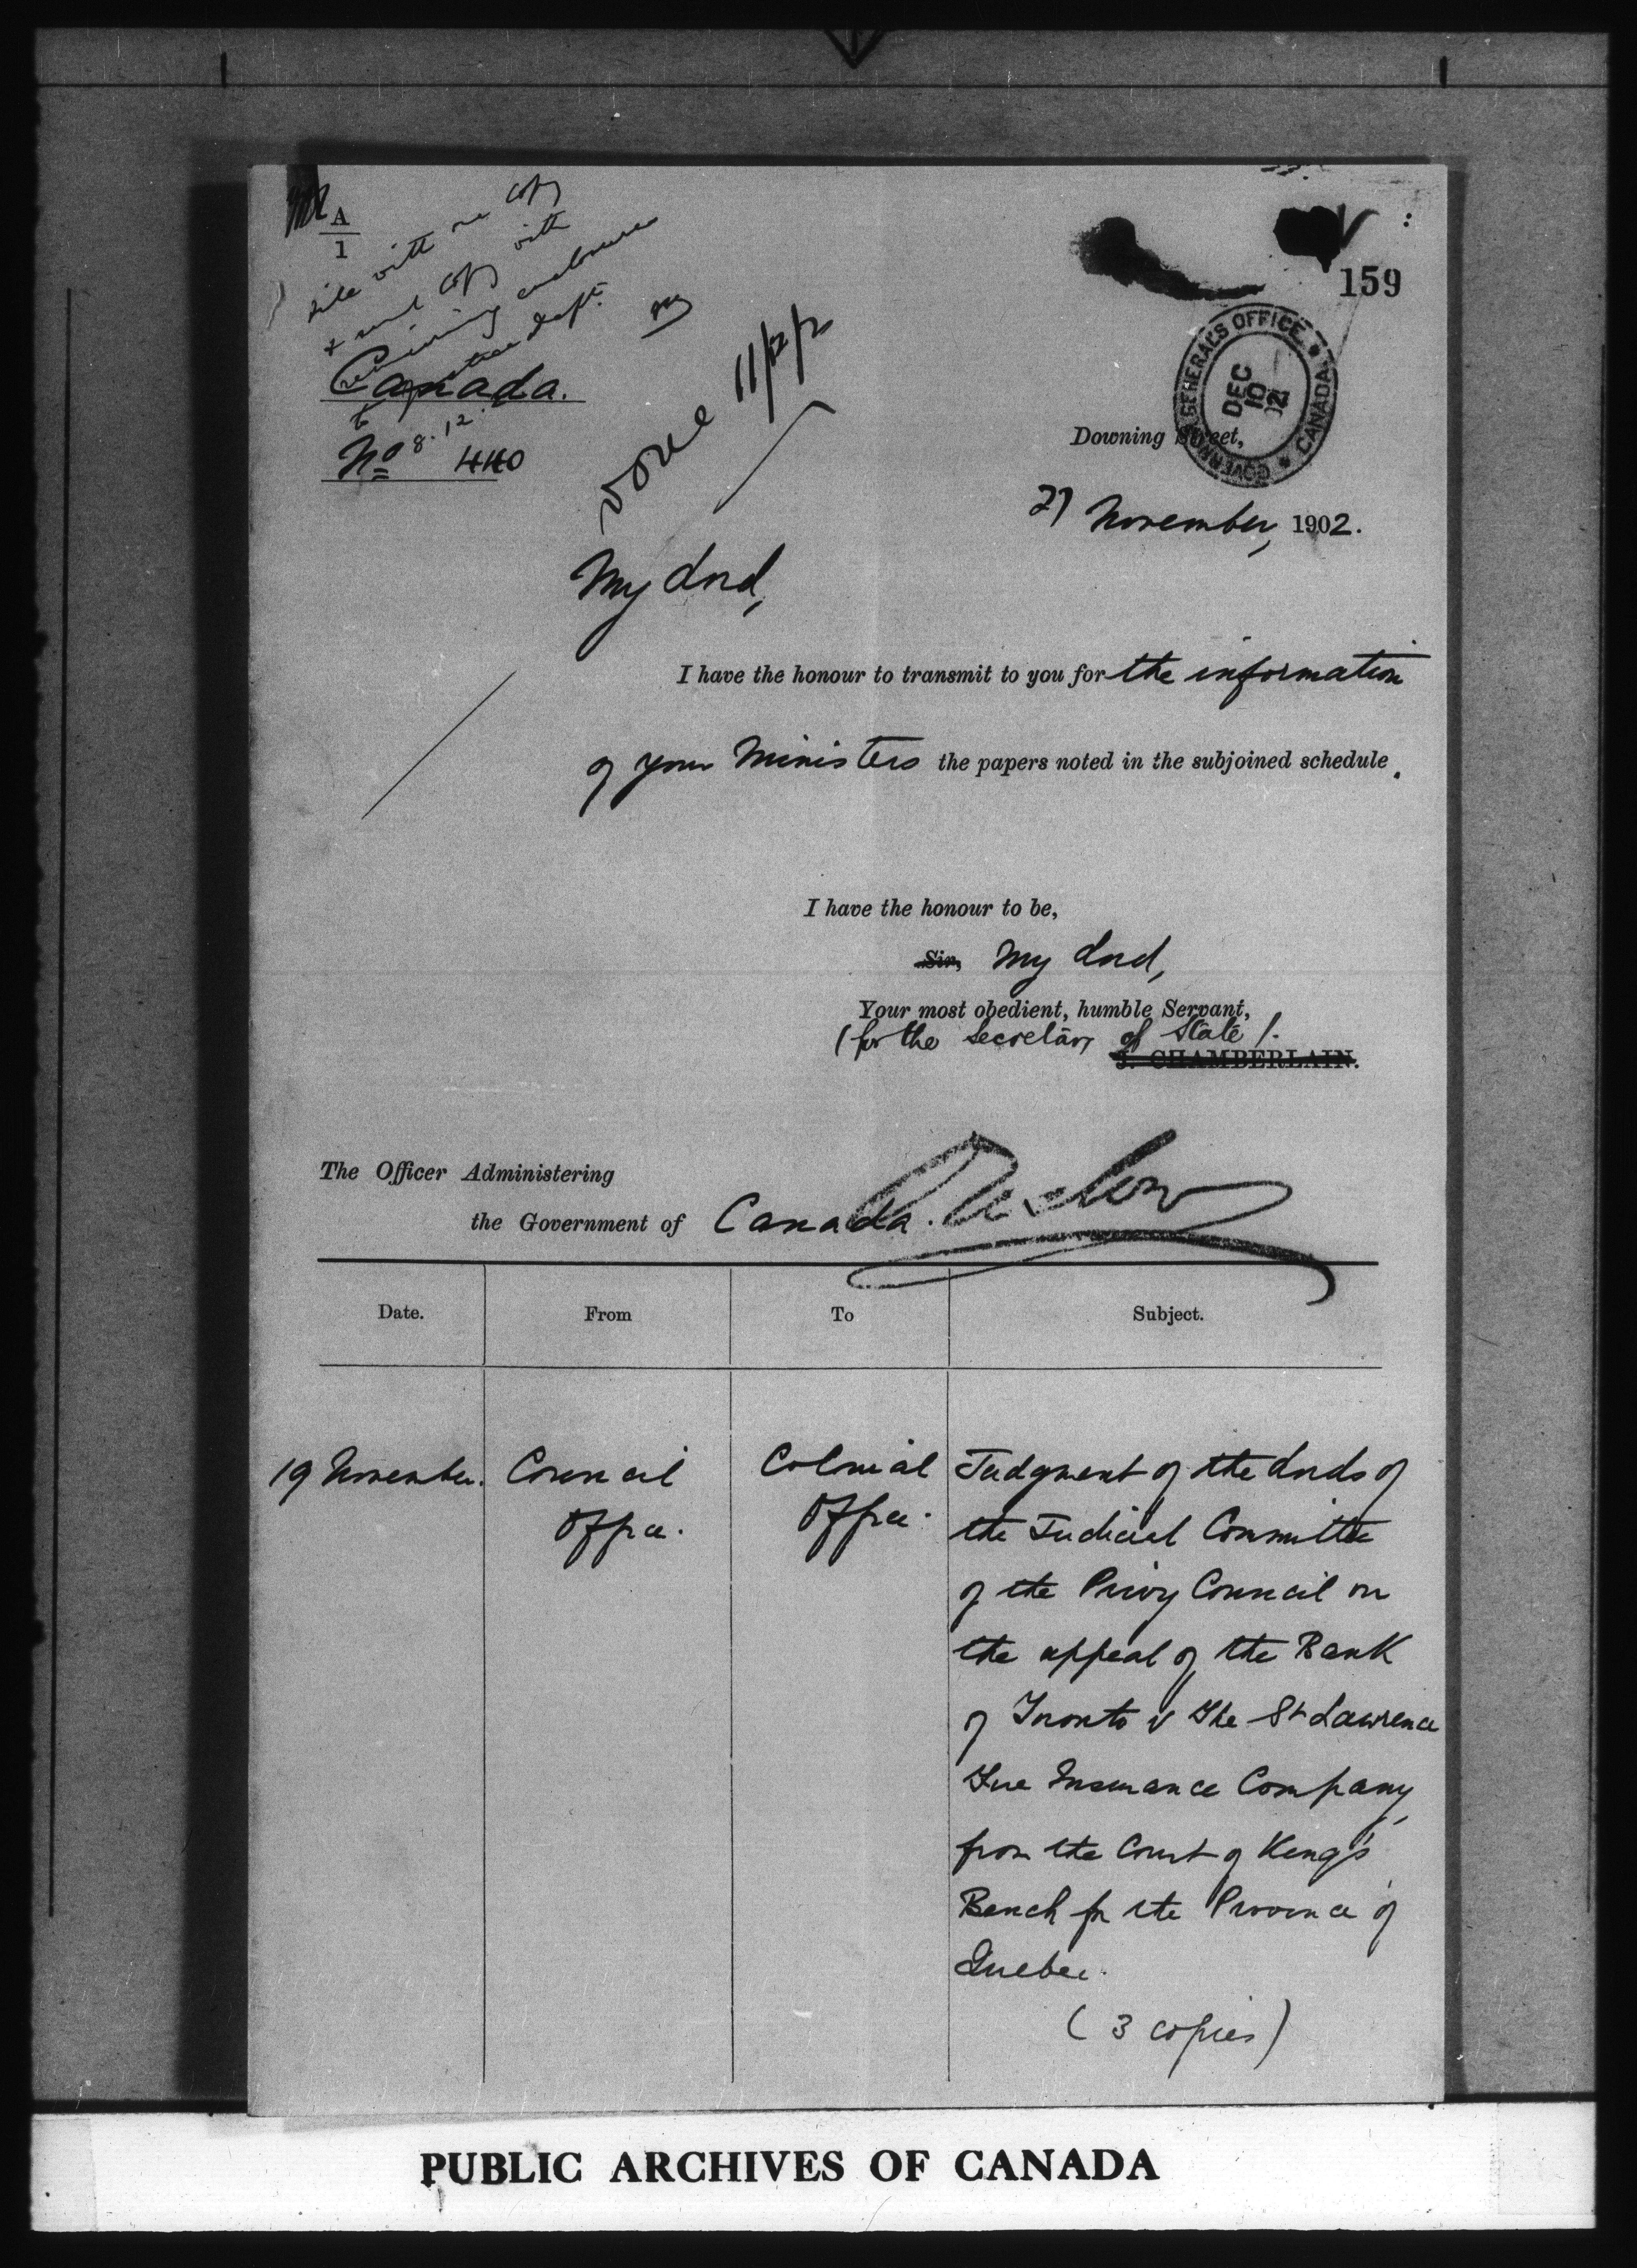 A
1
file with one copy
& send copy with
remaining enclosures
to Justice dept.
8.12.
Canada.
No 440
Done 11/12/2
159
GOVERNOR GENERAL'S OFFICE * CANADA *
DEC
10
02
Downing Street,
27 November, 1902.
My Lord,
I have the honour to transmit to you for the information
of your Ministers the papers noted in the subjoined schedule.
I have the honour to be,
Sir, My Lord,
Your most obedient, humble Servant,
(for the Secretary of State).
J. CHAMBERLAIN.
The Officer Administering
the Government of Canada.
Onslow
Date. From To Subject.
19 November. Council Colonial Judgment of the Lords of
Office. Office. the Judicial Committee
of the Privy Council on
the appeal of the Bank
of Toronto v The St Lawrence
Fire Insurance Company,
from the Court of King's
Bench for the Province of
Quebec.
(3 copies)
PUBLIC ARCHIVES OF CANADA